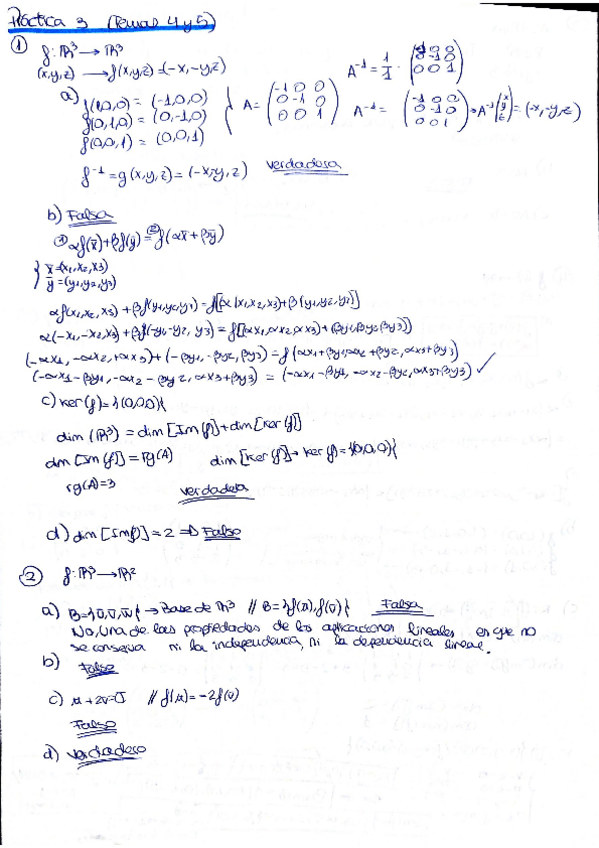 Práctica 3 (Temas 4 y 5)
① f: ℝ³ → ℝ³
(x,y,z) → f(x,y,z) = (-x, -y, z)
A⁻¹ = 1/1 · (-1 0 0 / 0 -1 0 / 0 0 1)
a) f(1,0,0) = (-1,0,0)
f(0,1,0) = (0,-1,0)
f(0,0,1) = (0,0,1)
A = (-1 0 0 / 0 -1 0 / 0 0 1)
A⁻¹ = (-1 0 0 / 0 -1 0 / 0 0 1) → A⁻¹ (x / y / z) = (-x, -y, z)
f⁻¹ = g(x,y,z) = (-x, -y, z) verdadera
b) Falsa
① αf(x̄) + βf(ȳ) = ② f(αx̄ + βȳ)
{ x̄ = (x₁, x₂, x₃)
ȳ = (y₁, y₂, y₃)
αf(x₁, x₂, x₃) + βf(y₁, y₂, y₃) = f[α(x₁, x₂, x₃) + β(y₁, y₂, y₃)]
α(-x₁, -x₂, x₃) + β(-y₁, -y₂, y₃) = f[(αx₁, αx₂, αx₃) + (βy₁, βy₂, βy₃)]
(-αx₁, -αx₂, +αx₃) + (-βy₁, -βy₂, βy₃) = f(αx₁+βy₁, αx₂+βy₂, αx₃+βy₃)
(-αx₁-βy₁, -αx₂-βy₂, αx₃+βy₃) = (-αx₁-βy₁, -αx₂-βy₂, αx₃+βy₃) ✓
c) Ker(f) = {(0,0,0)}
dim (ℝ³) = dim [Im f] + dim [Ker f]
dim [Im f] = rg(A) dim [Ker f] → Ker f = {(0,0,0)}
rg(A) = 3 verdadera
d) dim [Im f] = 2 ⇒ Falso
② f: ℝ³ → ℝ²
a) B = {ū, v̄, w̄} → Base de ℝ³ // B = {f(ū), f(v̄)} Falsa
No, una de las propiedades de las aplicaciones lineales es que no
se conserva ni la independencia, ni la dependencia lineal.
b) Falso
c) u + 2v = // f(u) = -2f(v)
Falso
d) Verdadero